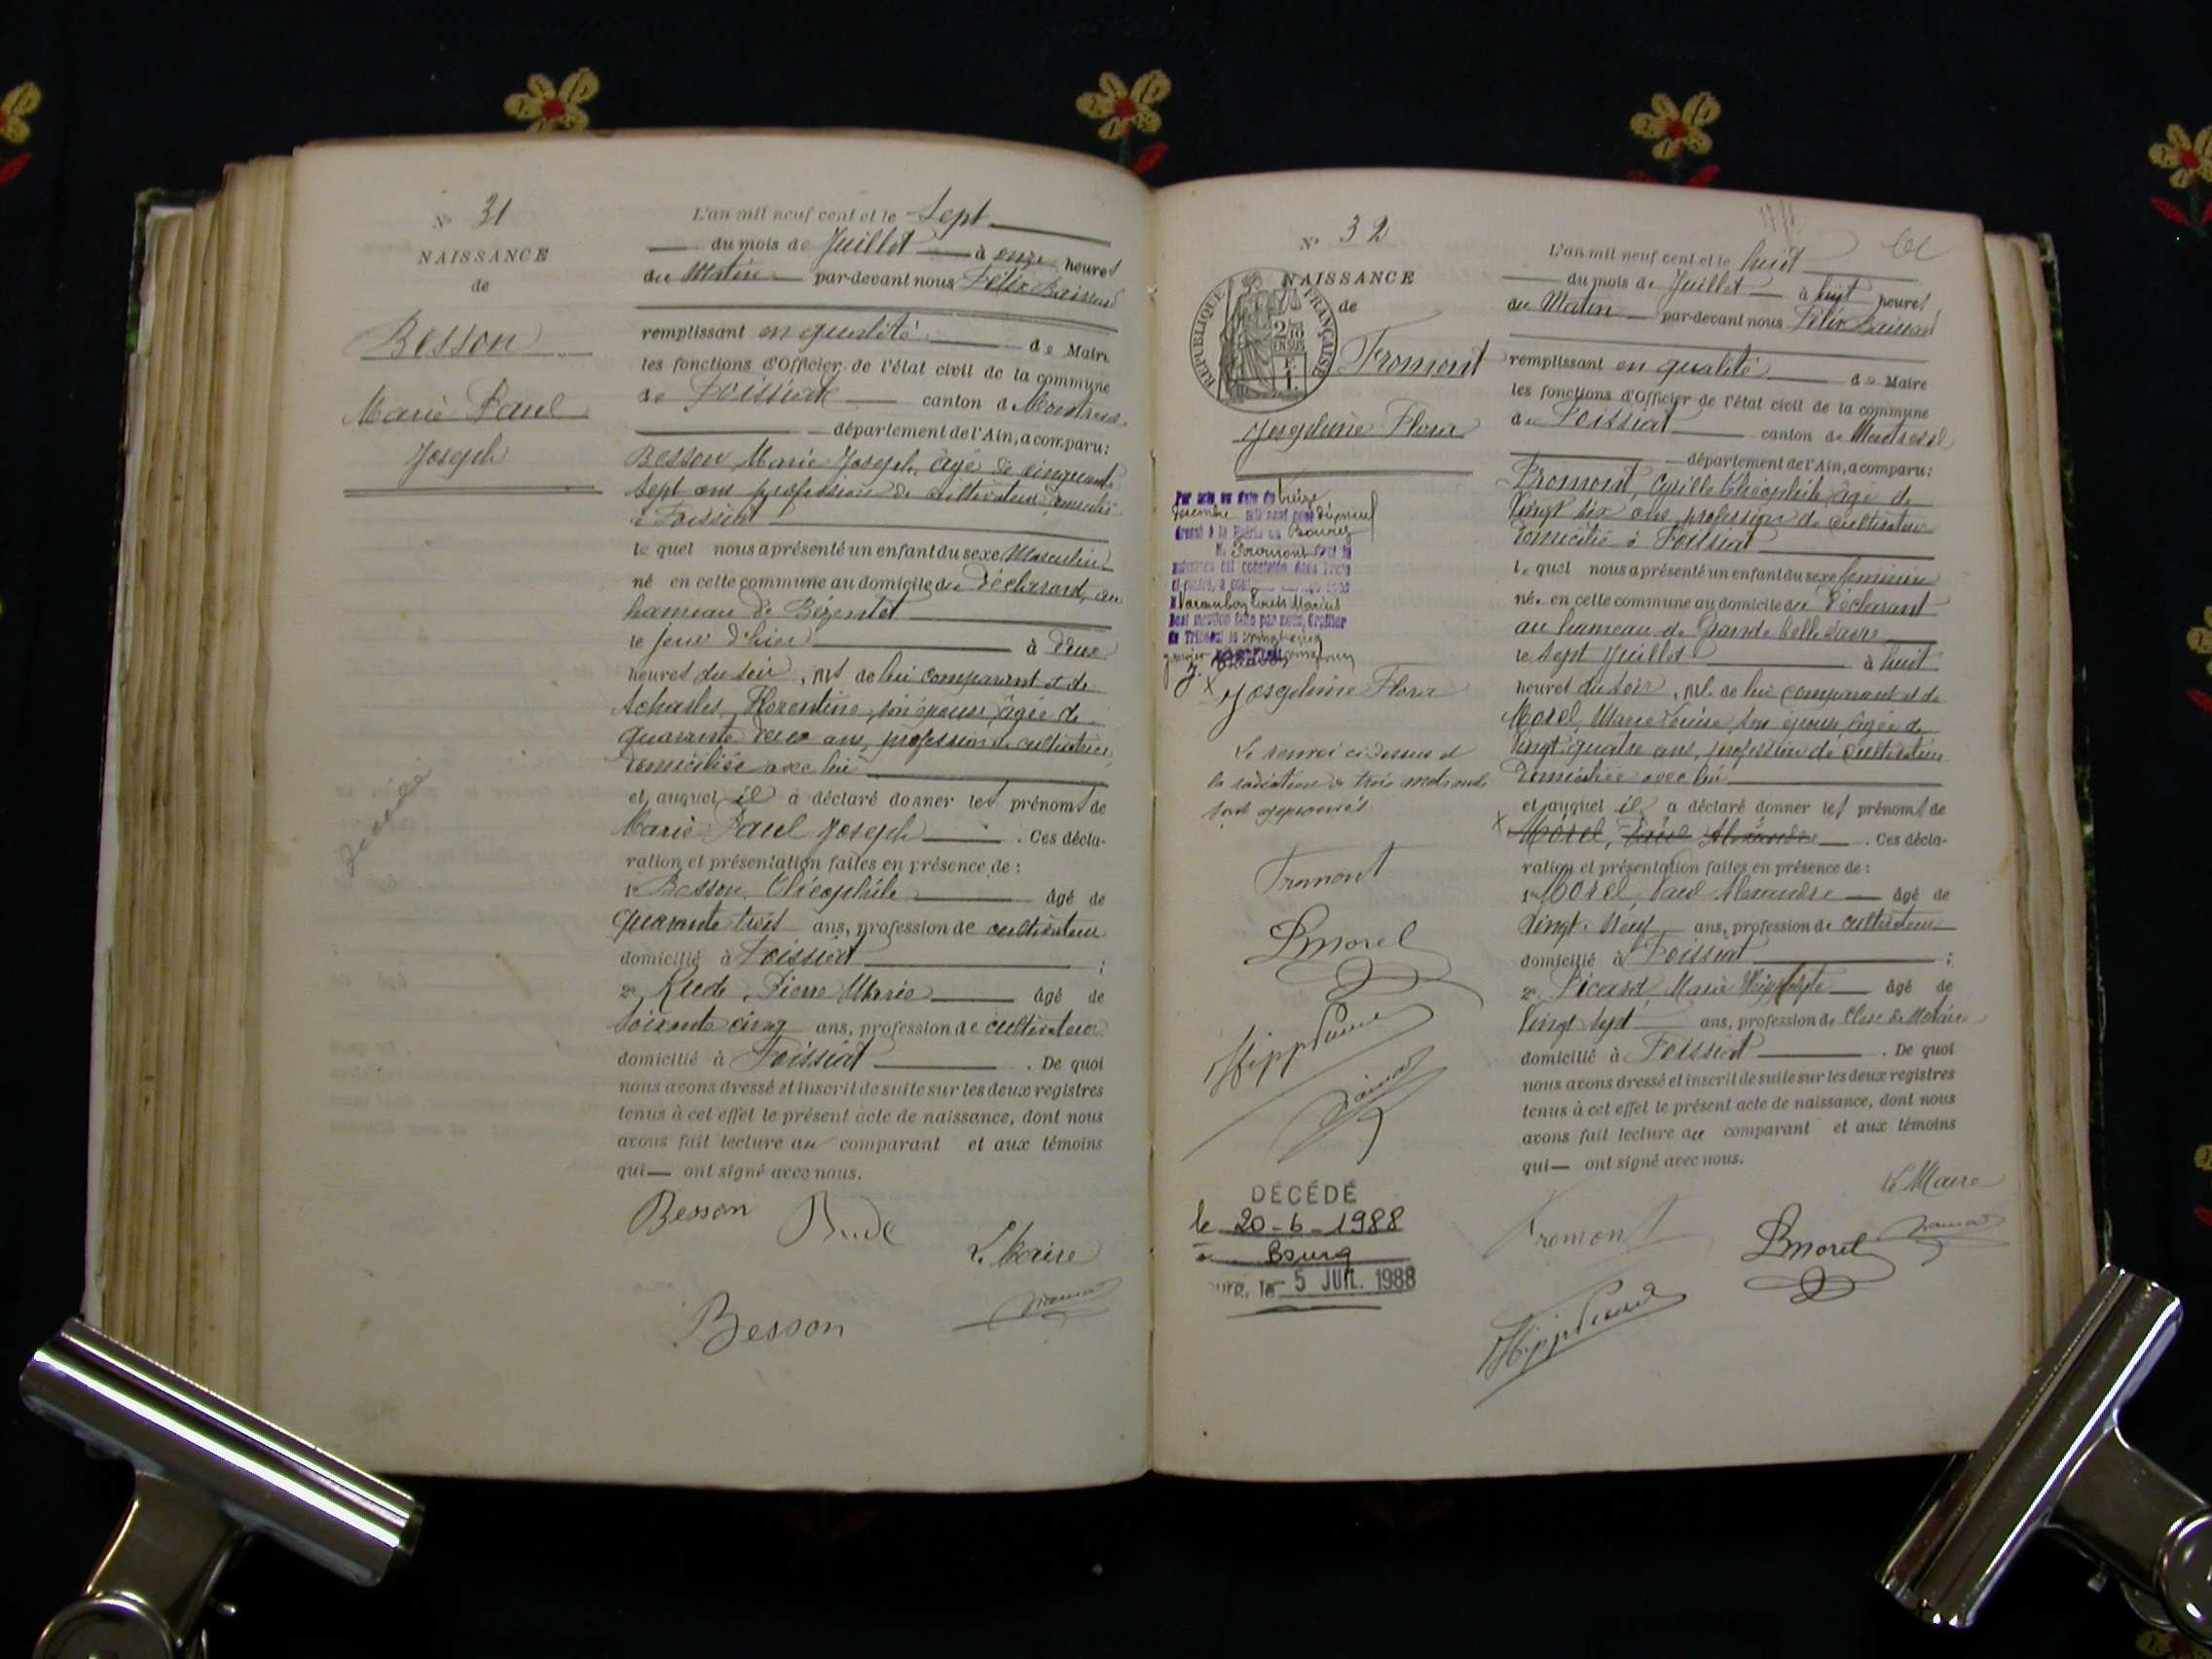 N° 31
NAISSANCE
de
Besson
Marie Paul
Joseph
L'an mil neuf cent et le Sept
du mois de Juillet à onze heures
du Matin par-devant nous Félix
remplissant en qualité de Maire
les fonctions d'Officier de l'état civil de la commune
de Foissiat canton de Montrevel
département de l'Ain, a comparu:
Besson Marie Joseph, âgé de cinquante
sept ans profession de cultivateur domicilié
à Foissiat
le quel nous a présenté un enfant du sexe Masculin
né en cette commune au domicile du déclarant, au
hameau de
le jour d'hier à deux
heures du soir, fils de lui comparant et de
Florentine, son épouse, âgée de
quarante deux ans, profession de cultivateur,
domiciliée avec lui
et auquel il a déclaré donner les prénoms de
Marie Paul Joseph . Ces décla-
ration et présentation faites en présence de :
1° Besson, Théophile âgé de
quarante trois ans, profession de cultivateur
domicilié à Foissiat ;
2° Rude, Pierre Marie âgé de
soixante cinq ans, profession de cultivateur
domicilié à Foissiat . De quoi
nous avons dressé et inscrit de suite sur les deux registres
tenus à cet effet le présent acte de naissance, dont nous
avons fait lecture au comparant et aux témoins
qui ont signé avec nous.
Besson Rude
Le Maire
Besson
N° 32
NAISSANCE
de
REPUBLIQUE FRANÇAISE
Fromont
Joséphine Flora
Par acte en date du treize
décembre mil neuf cent dix neuf
dressé à la Mairie de Bourg
M. Fromont dont la
naissance est constatée dans l'acte
Louis Marius
Dont mention faite par nous, Greffier
du Tribunal le vingt cinq
X Joséphine Flora
Le renvoi ci-dessus et
la radiation de trois mots nuls
sont approuvés
Fromont
Pmorel
DÉCÉDÉ
le 20-6-1988
à Bourg
le 5 JUIL. 1988
L'an mil neuf cent et le huit
du mois de Juillet à huit heures
du Matin par-devant nous Félix
remplissant en qualité de Maire
les fonctions d'Officier de l'état civil de la commune
de Foissiat canton de Montrevel
département de l'Ain, a comparu:
Fromont, Cyrille Théophile âgé de
Vingt six ans profession de cultivateur
domicilié à Foissiat
le quel nous a présenté un enfant du sexe féminin
née en cette commune au domicile du déclarant
au hameau de Grande
le sept Juillet à huit
heures du soir, fille de lui comparant et de
Morel Marie Louise son épouse âgée de
Vingt quatre ans, profession de cultivateur
domiciliée avec lui
et auquel il a déclaré donner les prénoms de
X Morel, Paul Alexandre . Ces décla-
ration et présentation faites en présence de :
1° Morel, Paul Alexandre âgé de
Vingt Neuf ans, profession de cultivateur
domicilié à Foissiat ;
2° Picard, Marie Hippolyte âgé de
Vingt Sept ans, profession de Clerc de Notaire
domicilié à Foissiat . De quoi
nous avons dressé et inscrit de suite sur les deux registres
tenus à cet effet le présent acte de naissance, dont nous
avons fait lecture au comparant et aux témoins
qui ont signé avec nous.
Le Maire
Fromont Pmorel